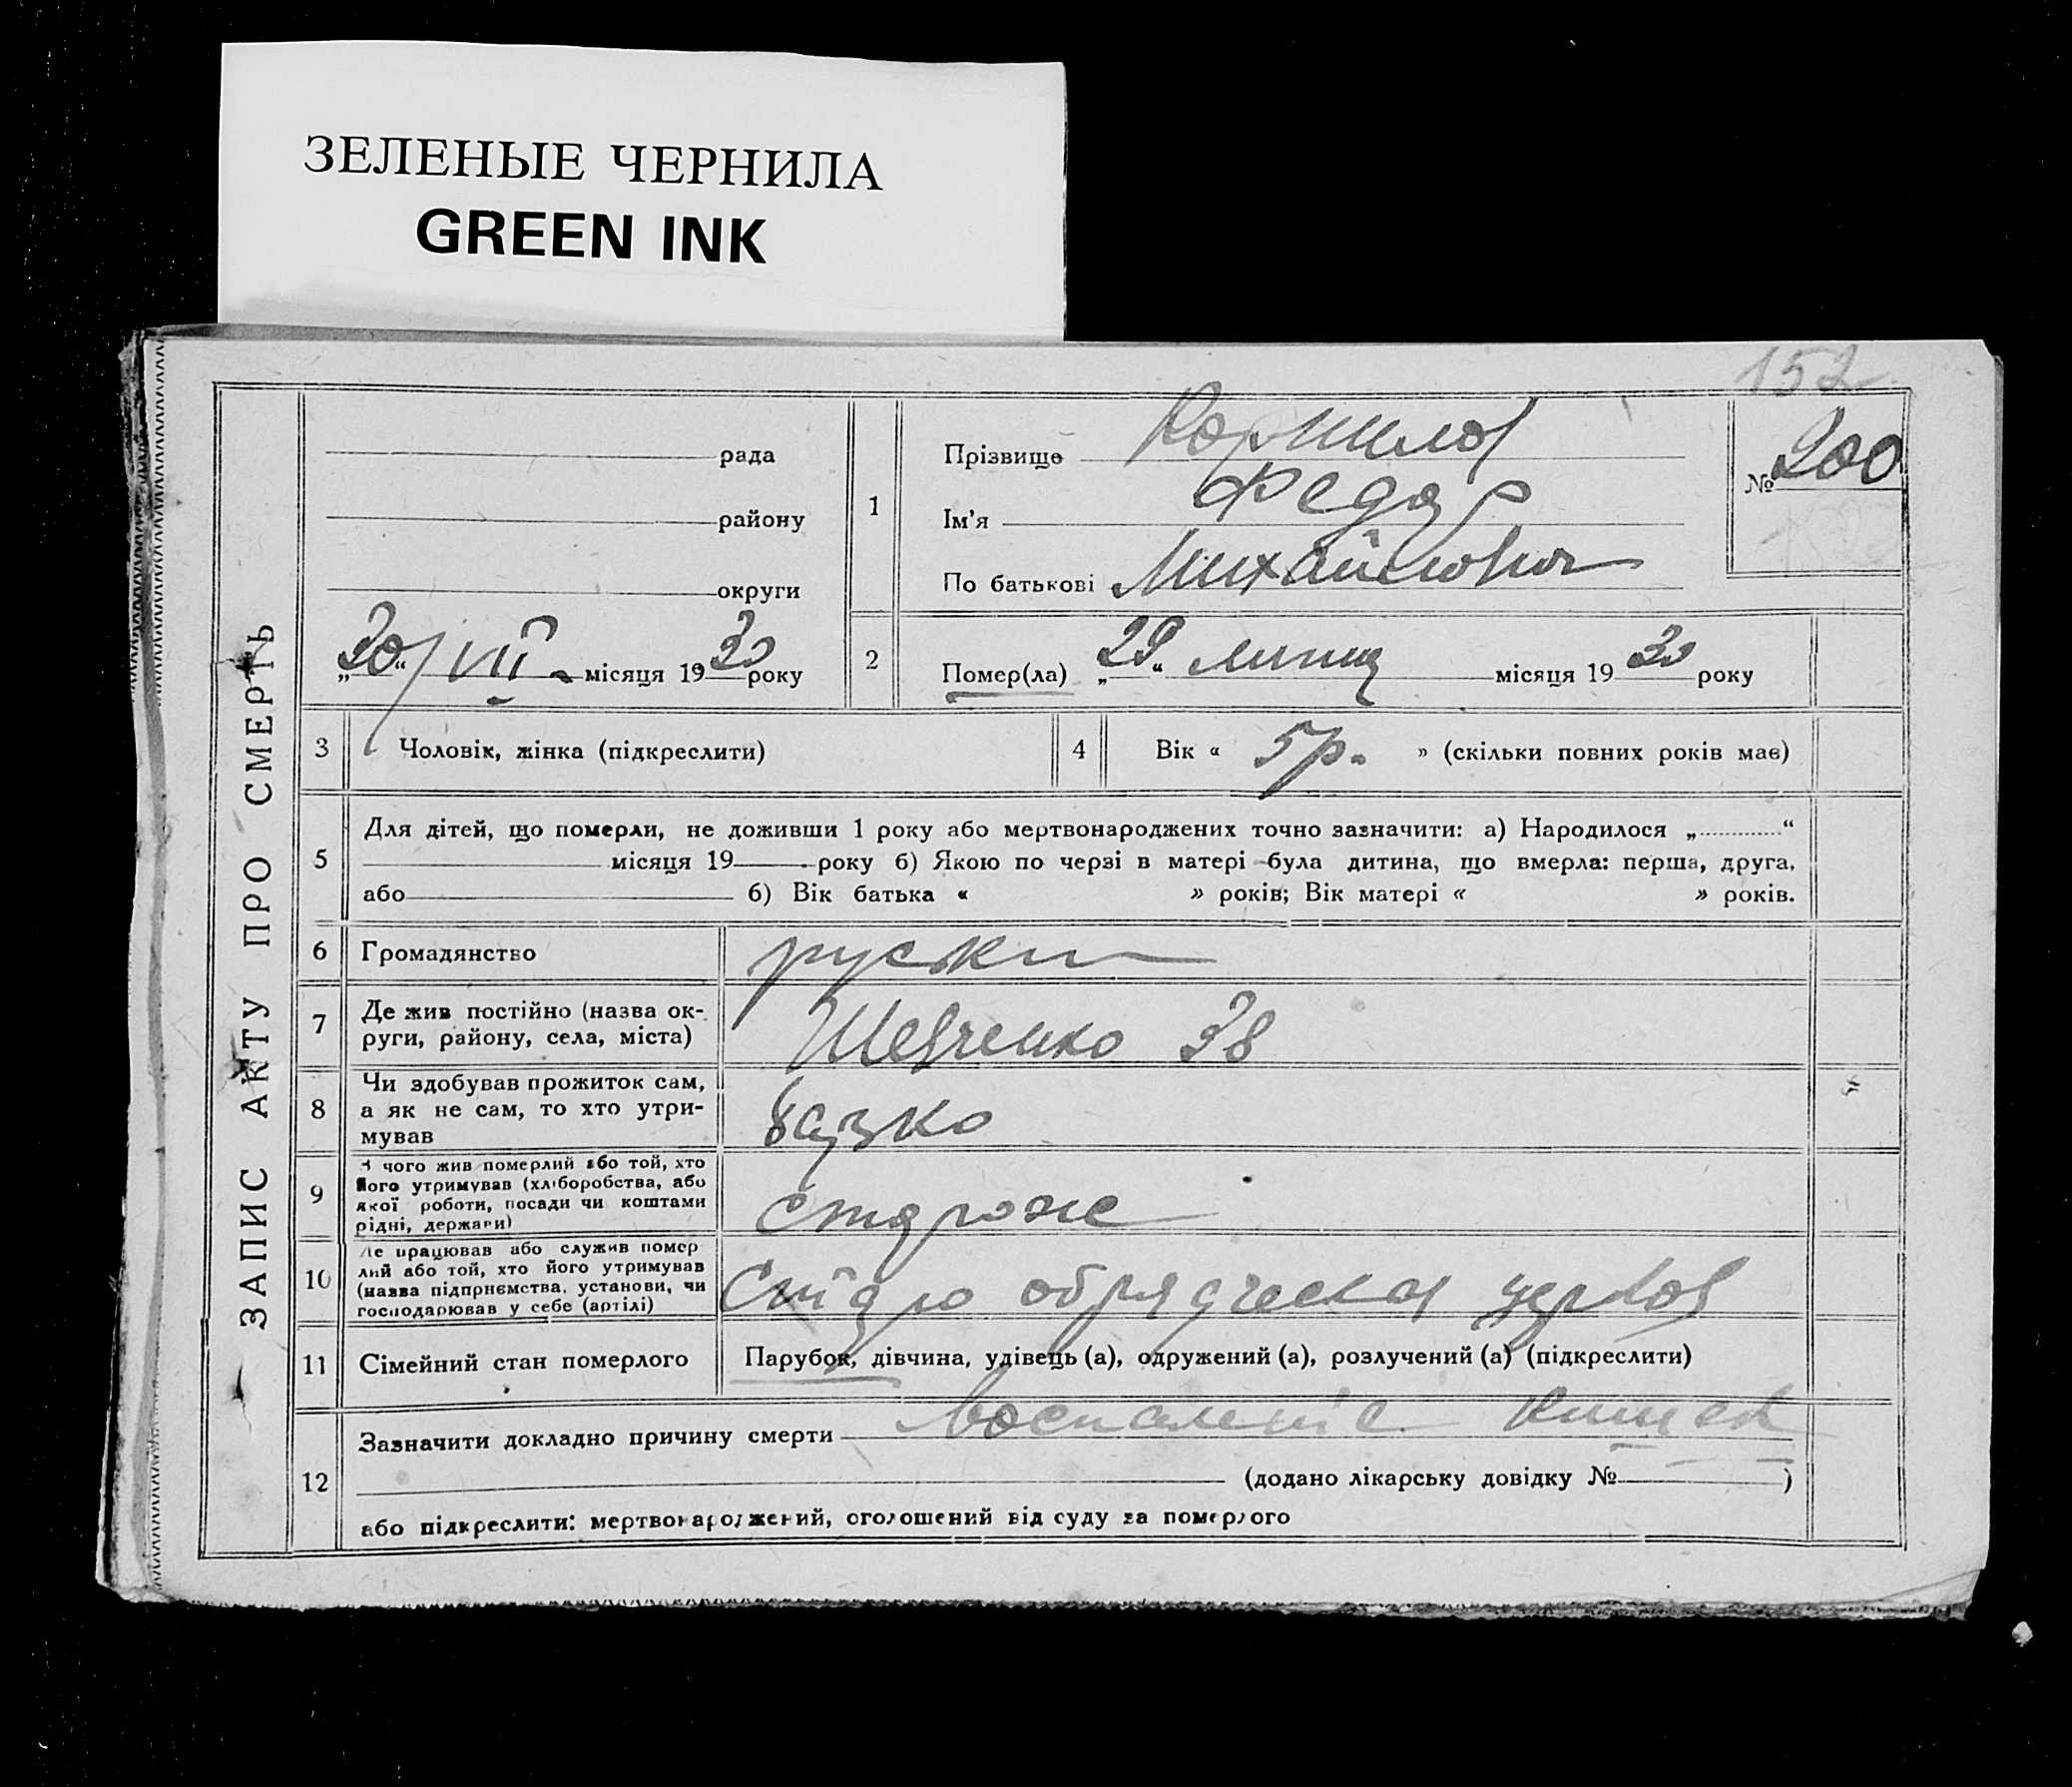 ЗЕЛЕНЫЕ ЧЕРНИЛА
GREEN INK
152
ЗАПИС АКТУ ПРО СМЕРТЬ
рада
району
округи
„30“/VII місяця 1930 року
1
Прізвище Корнилов
Ім'я Федор
По батькові Михайлович
№ 200
2
Помер(ла) „29“ липня місяця 1930 року
3
Чоловік, жінка (підкреслити)
4
Вік « 5 р. » (скільки повних років має)
5
Для дітей, що померли, не доживши 1 року або мертвонароджених точно зазначити: а) Народилося „ “
місяця 19 року б) Якою по черзі в матері була дитина, що вмерла: перша, друга,
або б) Вік батька « » років; Вік матері « » років.
6
Громадянство
руский
7
Де жив постійно (назва ок-
руги, району, села, міста)
Шевченко 38
8
Чи здобував прожиток сам,
а як не сам, то хто утри-
мував
батько
9
З чого жив померлий або той, хто
його утримував (хліборобства, або
якої роботи, посади чи коштами
рідні, держави)
стороже
10
Де працював або служив помер
лий або той, хто його утримував
(назва підприємства, установи, чи
господарював у себе (артілі)
Старо обрядческая церков
11
Сімейний стан померлого
Парубок, дівчина, удівець (а), одружений (а), розлучений (а) (підкреслити)
12
Зазначити докладно причину смерти Воспаленіе кишек
(додано лікарську довідку № )
або підкреслити: мертвонароджений, оголошений від суду за померлого